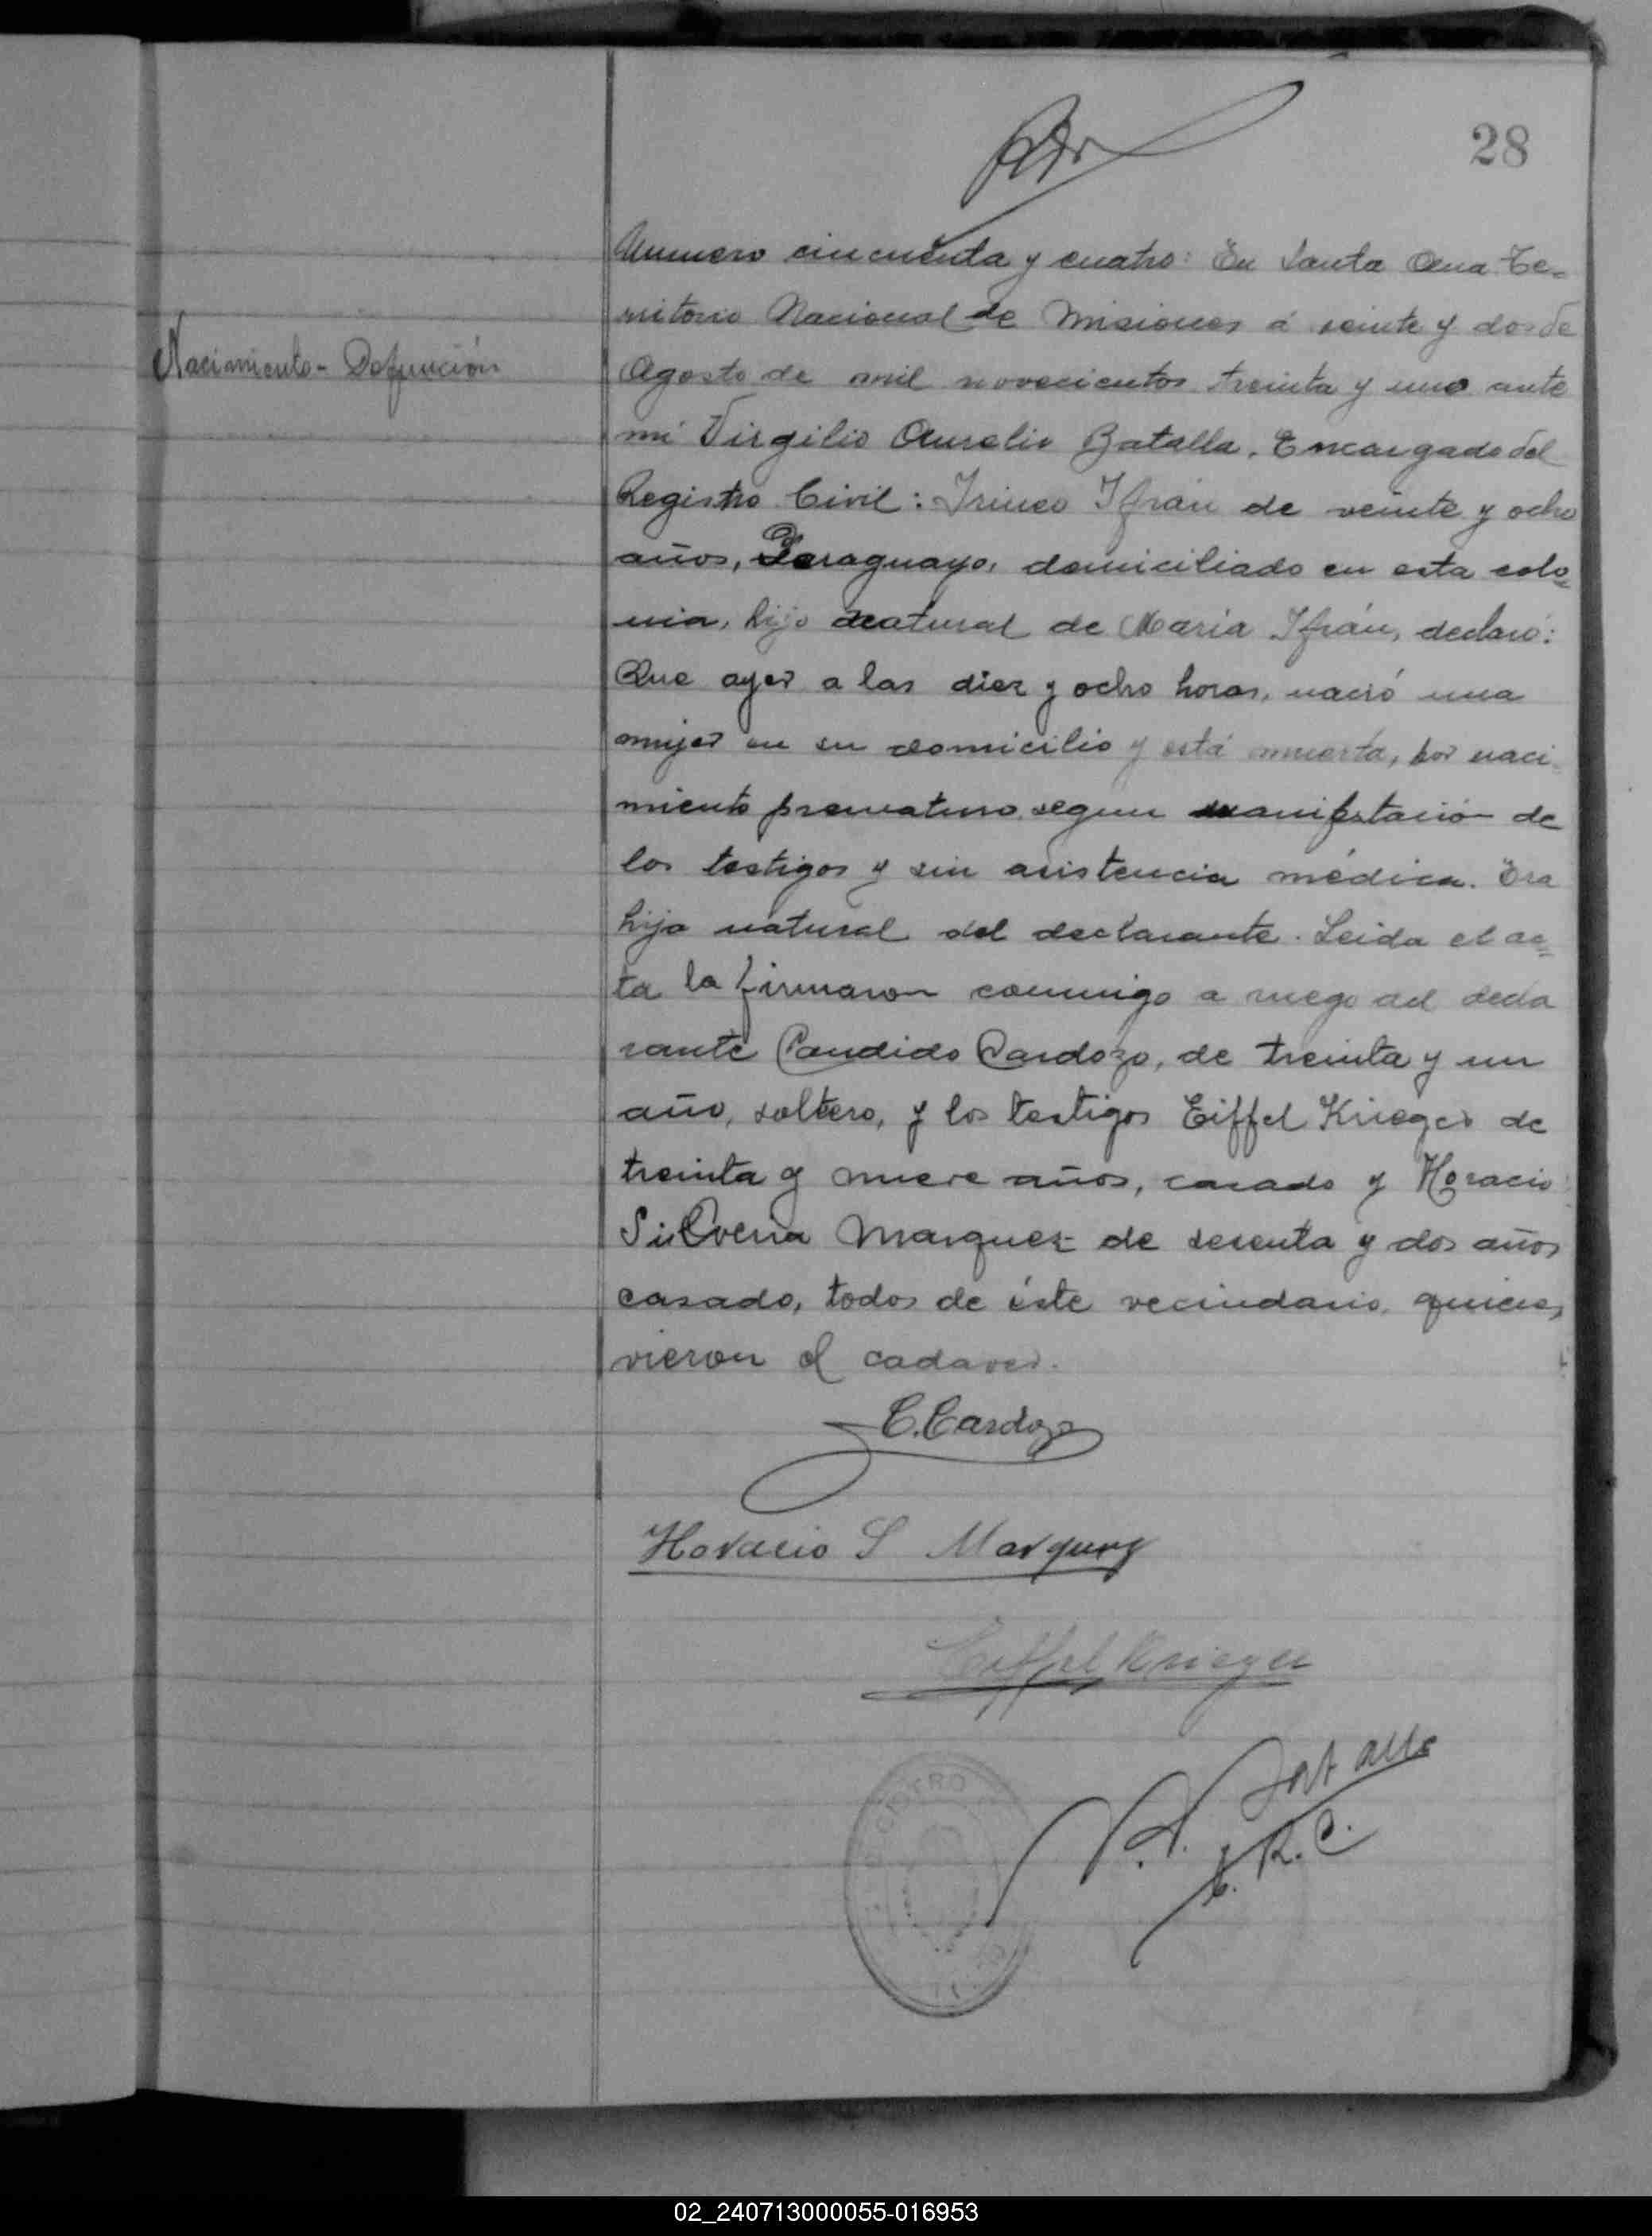 28
Numero cincuenta y cuatro: En Santa Ana Te=
rritorio Nacional de Misiones á veinte y dos de
Nacimiento - Defunción
Agosto de mil novecientos treinta y uno ante
mi Virgilio Aurelio Batalla, Encargado del
Registro Civil: Irineo Ifrán de veinte y ocho
años, Paraguayo, domiciliado en esta colo=
nia, hijo natural de María Ifrán, declaró:
Que ayer a las diez y ocho horas, nació una
mujer en su domicilio y está muerta, por naci-
miento prematuro segun manifestación de
los testigos y sin asistencia médica. Era
hija natural del declarante. Leida el ac=
ta la firmaron conmigo a ruego del decla
rante Candido Cardozo, de treinta y un
año, soltero, y los testigos Eiffel Krieger de
treinta y nueve años, casado y Horacio
Silveria Marquez de sesenta y dos años
casado, todos de éste vecindario, quienes
vieron el cadaver.
C. Cardozo
Horacio S Marquez
Eiffel Krieger
V. A. Batalla
E. R. C.
REGISTRO
02_240713000055-016953